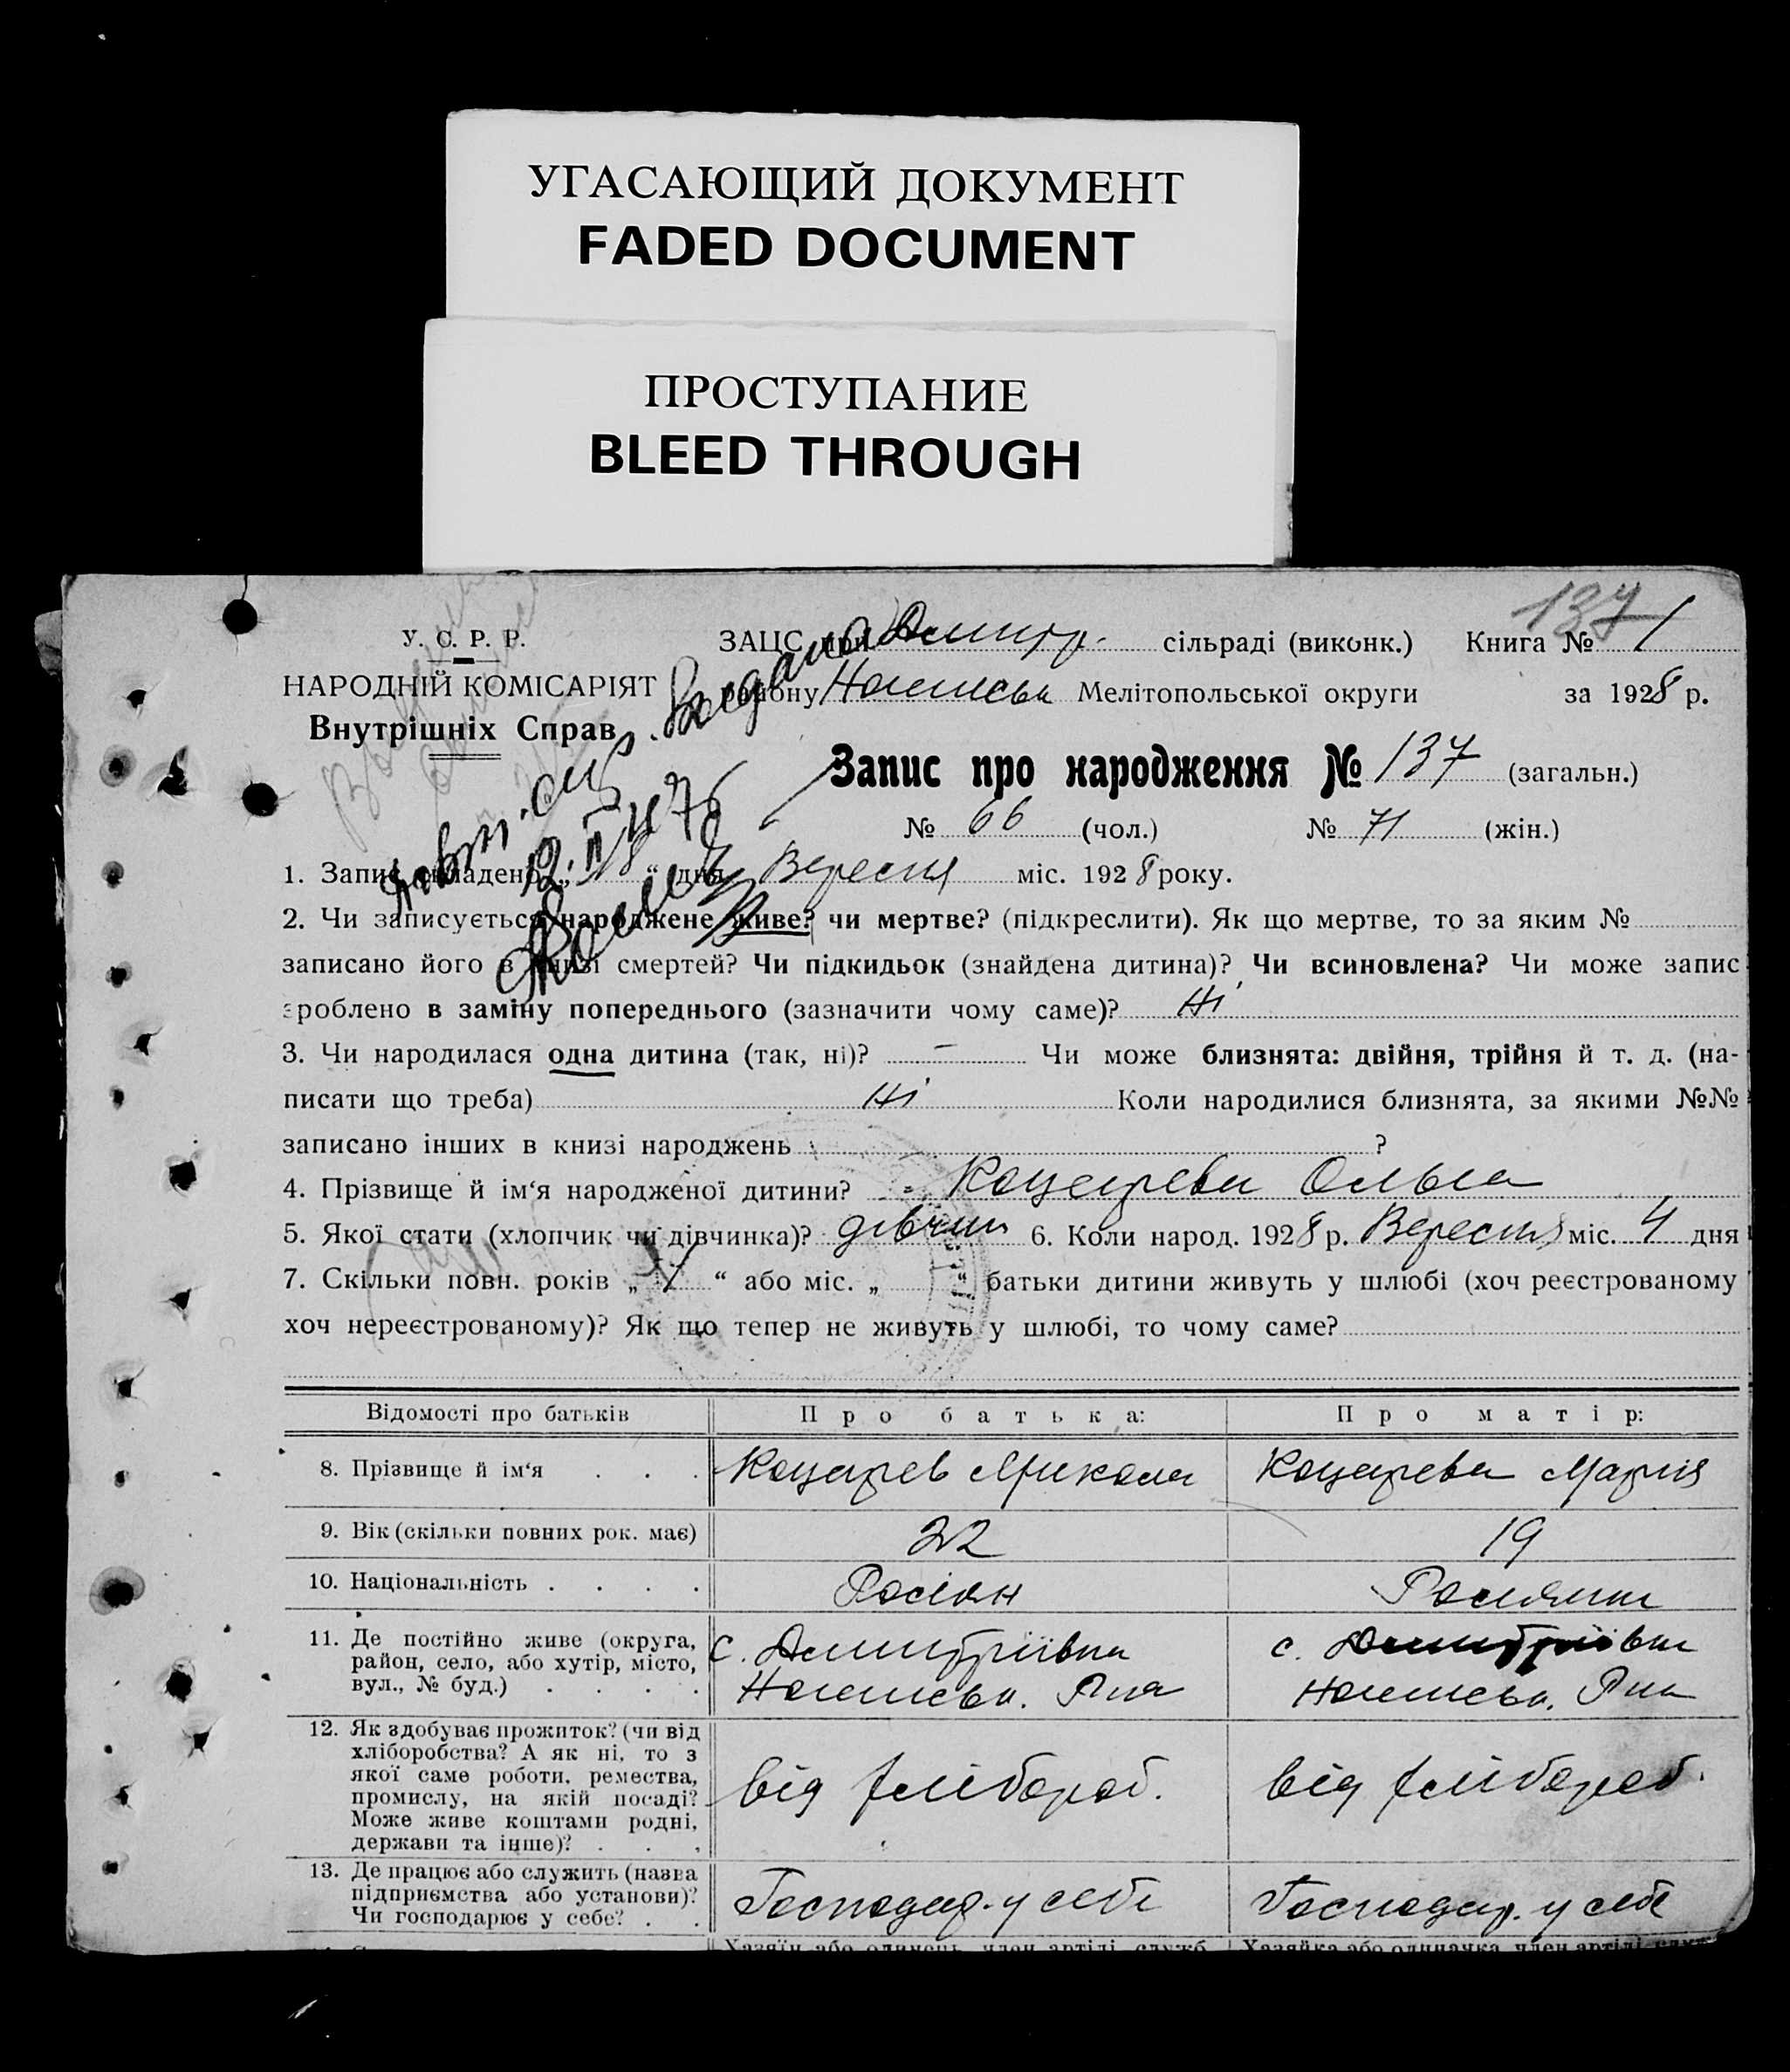 УГАСАЮЩИЙ ДОКУМЕНТ
FADED DOCUMENT
ПРОСТУПАНИЕ
BLEED THROUGH
137
У. С. Р. Р.
НАРОДНІЙ КОМІСАРІЯТ
Внутрішніх Справ
ЗАЦС при Дмитр. сільраді (виконк.) Книга № 1
району Мелітопольської округи за 1928 р.
Запис про народження № 137 (загальн.)
№ 66 (чол.) № 71 (жін.)
1. Запис складено „18“ дня Вересня міс. 1928 року.
2. Чи записується народжене живе? чи мертве? (підкреслити). Як що мертве, то за яким №
записано його в книзі смертей? Чи підкидьок (знайдена дитина)? Чи всиновлена? Чи може запис
зроблено в заміну попереднього (зазначити чому саме)? Ні
3. Чи народилася одна дитина (так, ні)? — Чи може близнята: двійня, трійня й т. д. (на-
писати що треба) Ні Коли народилися близнята, за якими №№
записано інших в книзі народжень ?
4. Прізвище й ім'я народженої дитини? Коцарева Ольга
5. Якої стати (хлопчик чи дівчинка)? дівчин 6. Коли народ. 1928 р. Вересня міс. 4 дня
7. Скільки повн. років „ “ або міс. „ “ батьки дитини живуть у шлюбі (хоч реєстрованому
хоч нереєстрованому)? Як що тепер не живуть у шлюбі, то чому саме?
Відомості про батьків Про батька: Про матір:
8. Прізвище й ім'я . . . Коцарев Микола Коцарева Марія
9. Вік (скільки повних рок. має) 22 19
10. Національність . . . . Росіян Росіянка
11. Де постійно живе (округа, район, село, або хутір, місто, вул., № буд.) . . . .
с. Дмитріївка
с. Дмитріївка
12. Як здобуває прожиток? (чи від хліборобства? А як ні, то з якої саме роботи, ремества, промислу, на якій посаді? Може живе коштами родні, держави та інше)? . . .
від хлібороб. від хлібороб.
13. Де працює або служить (назва підприємства або установи)? Чи господарює у себе? . .
Господар. у себе Господар. у себе
Хазяїн або одинець, член артілі, служб. Хазяйка або одиначка, член артілі